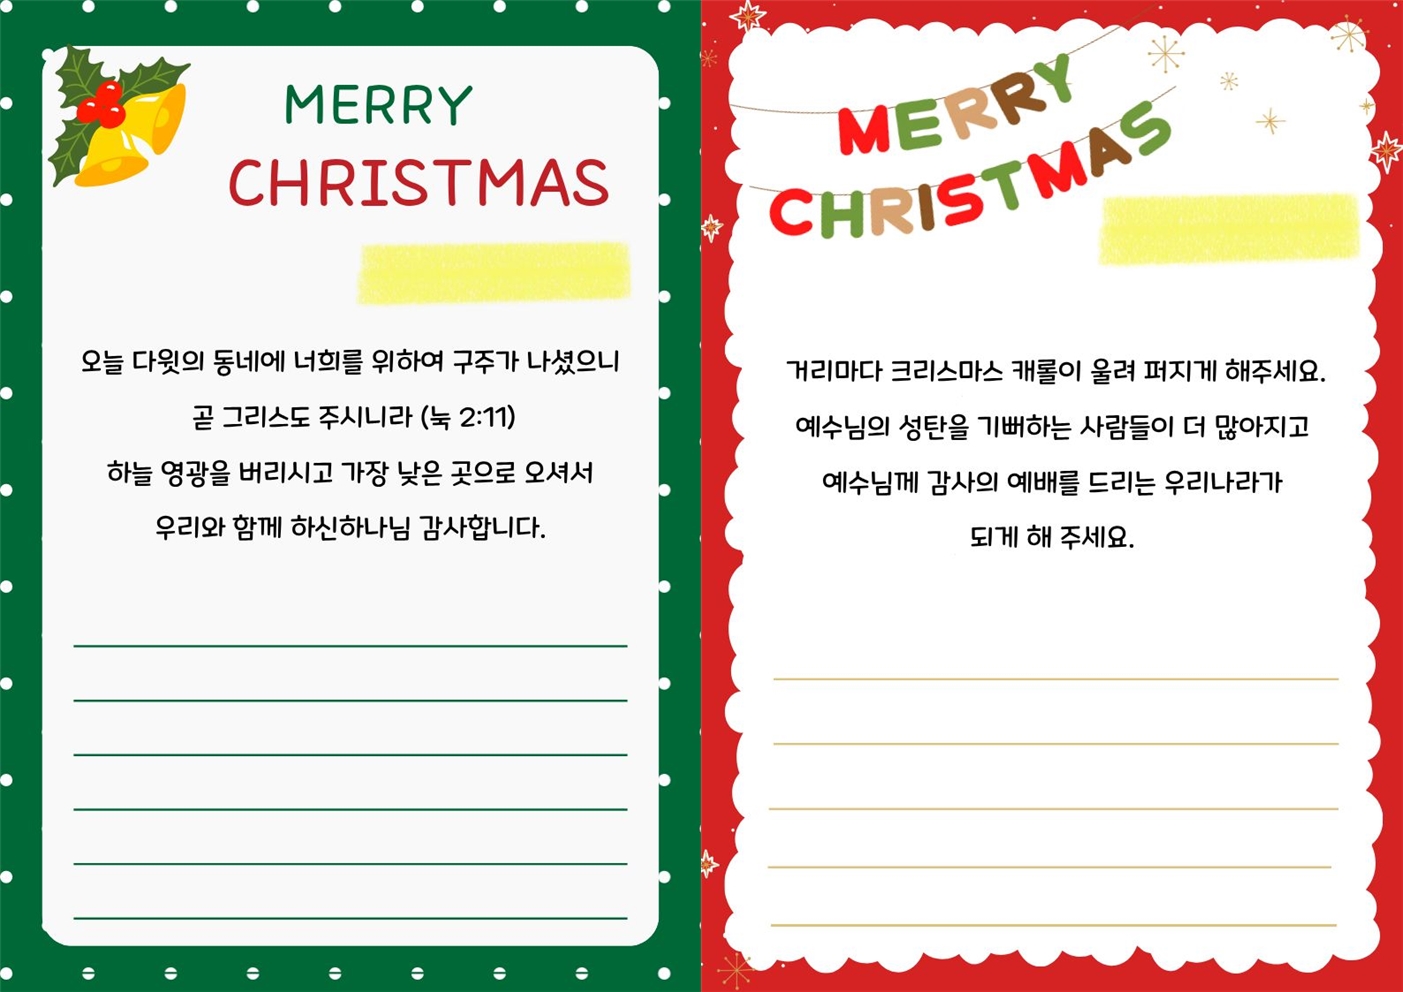 MERRY
CHRISTMAS
오늘 다윗의 동네에 너희를 위하여 구주가 나셨으니
곧 그리스도 주시니라 (눅 2:11)
하늘 영광을 버리시고 가장 낮은 곳으로 오셔서
우리와 함께 하신하나님 감사합니다.
MERRY
CHRISTMAS
거리마다 크리스마스 캐롤이 울려 퍼지게 해주세요.
예수님의 성탄을 기뻐하는 사람들이 더 많아지고
예수님께 감사의 예배를 드리는 우리나라가
되게 해 주세요.